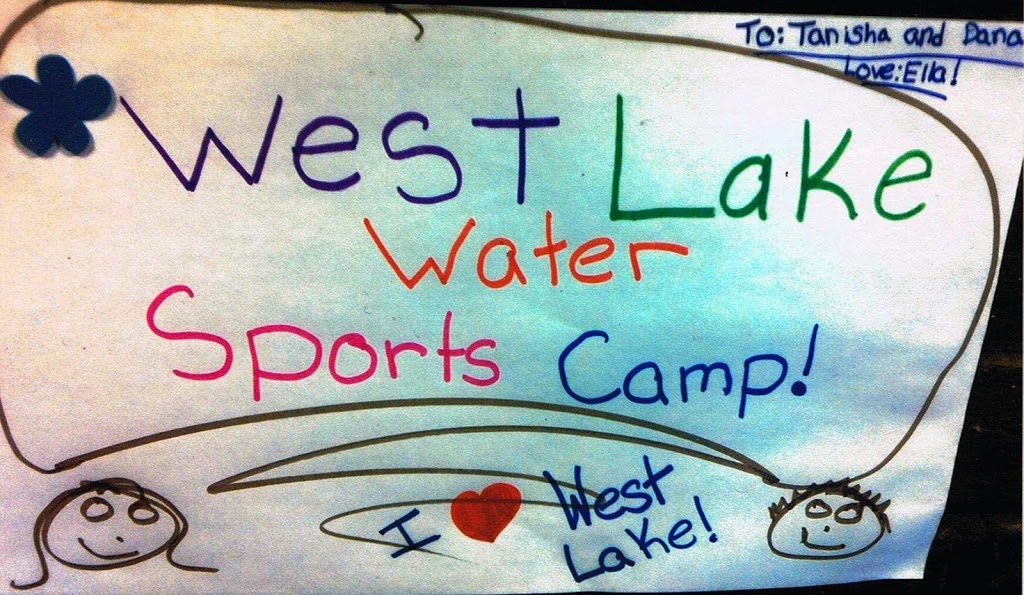 To: Tanisha and Dana
Love: Ella!
West Lake
Water
Sports Camp!
I ❤ West
Lake!